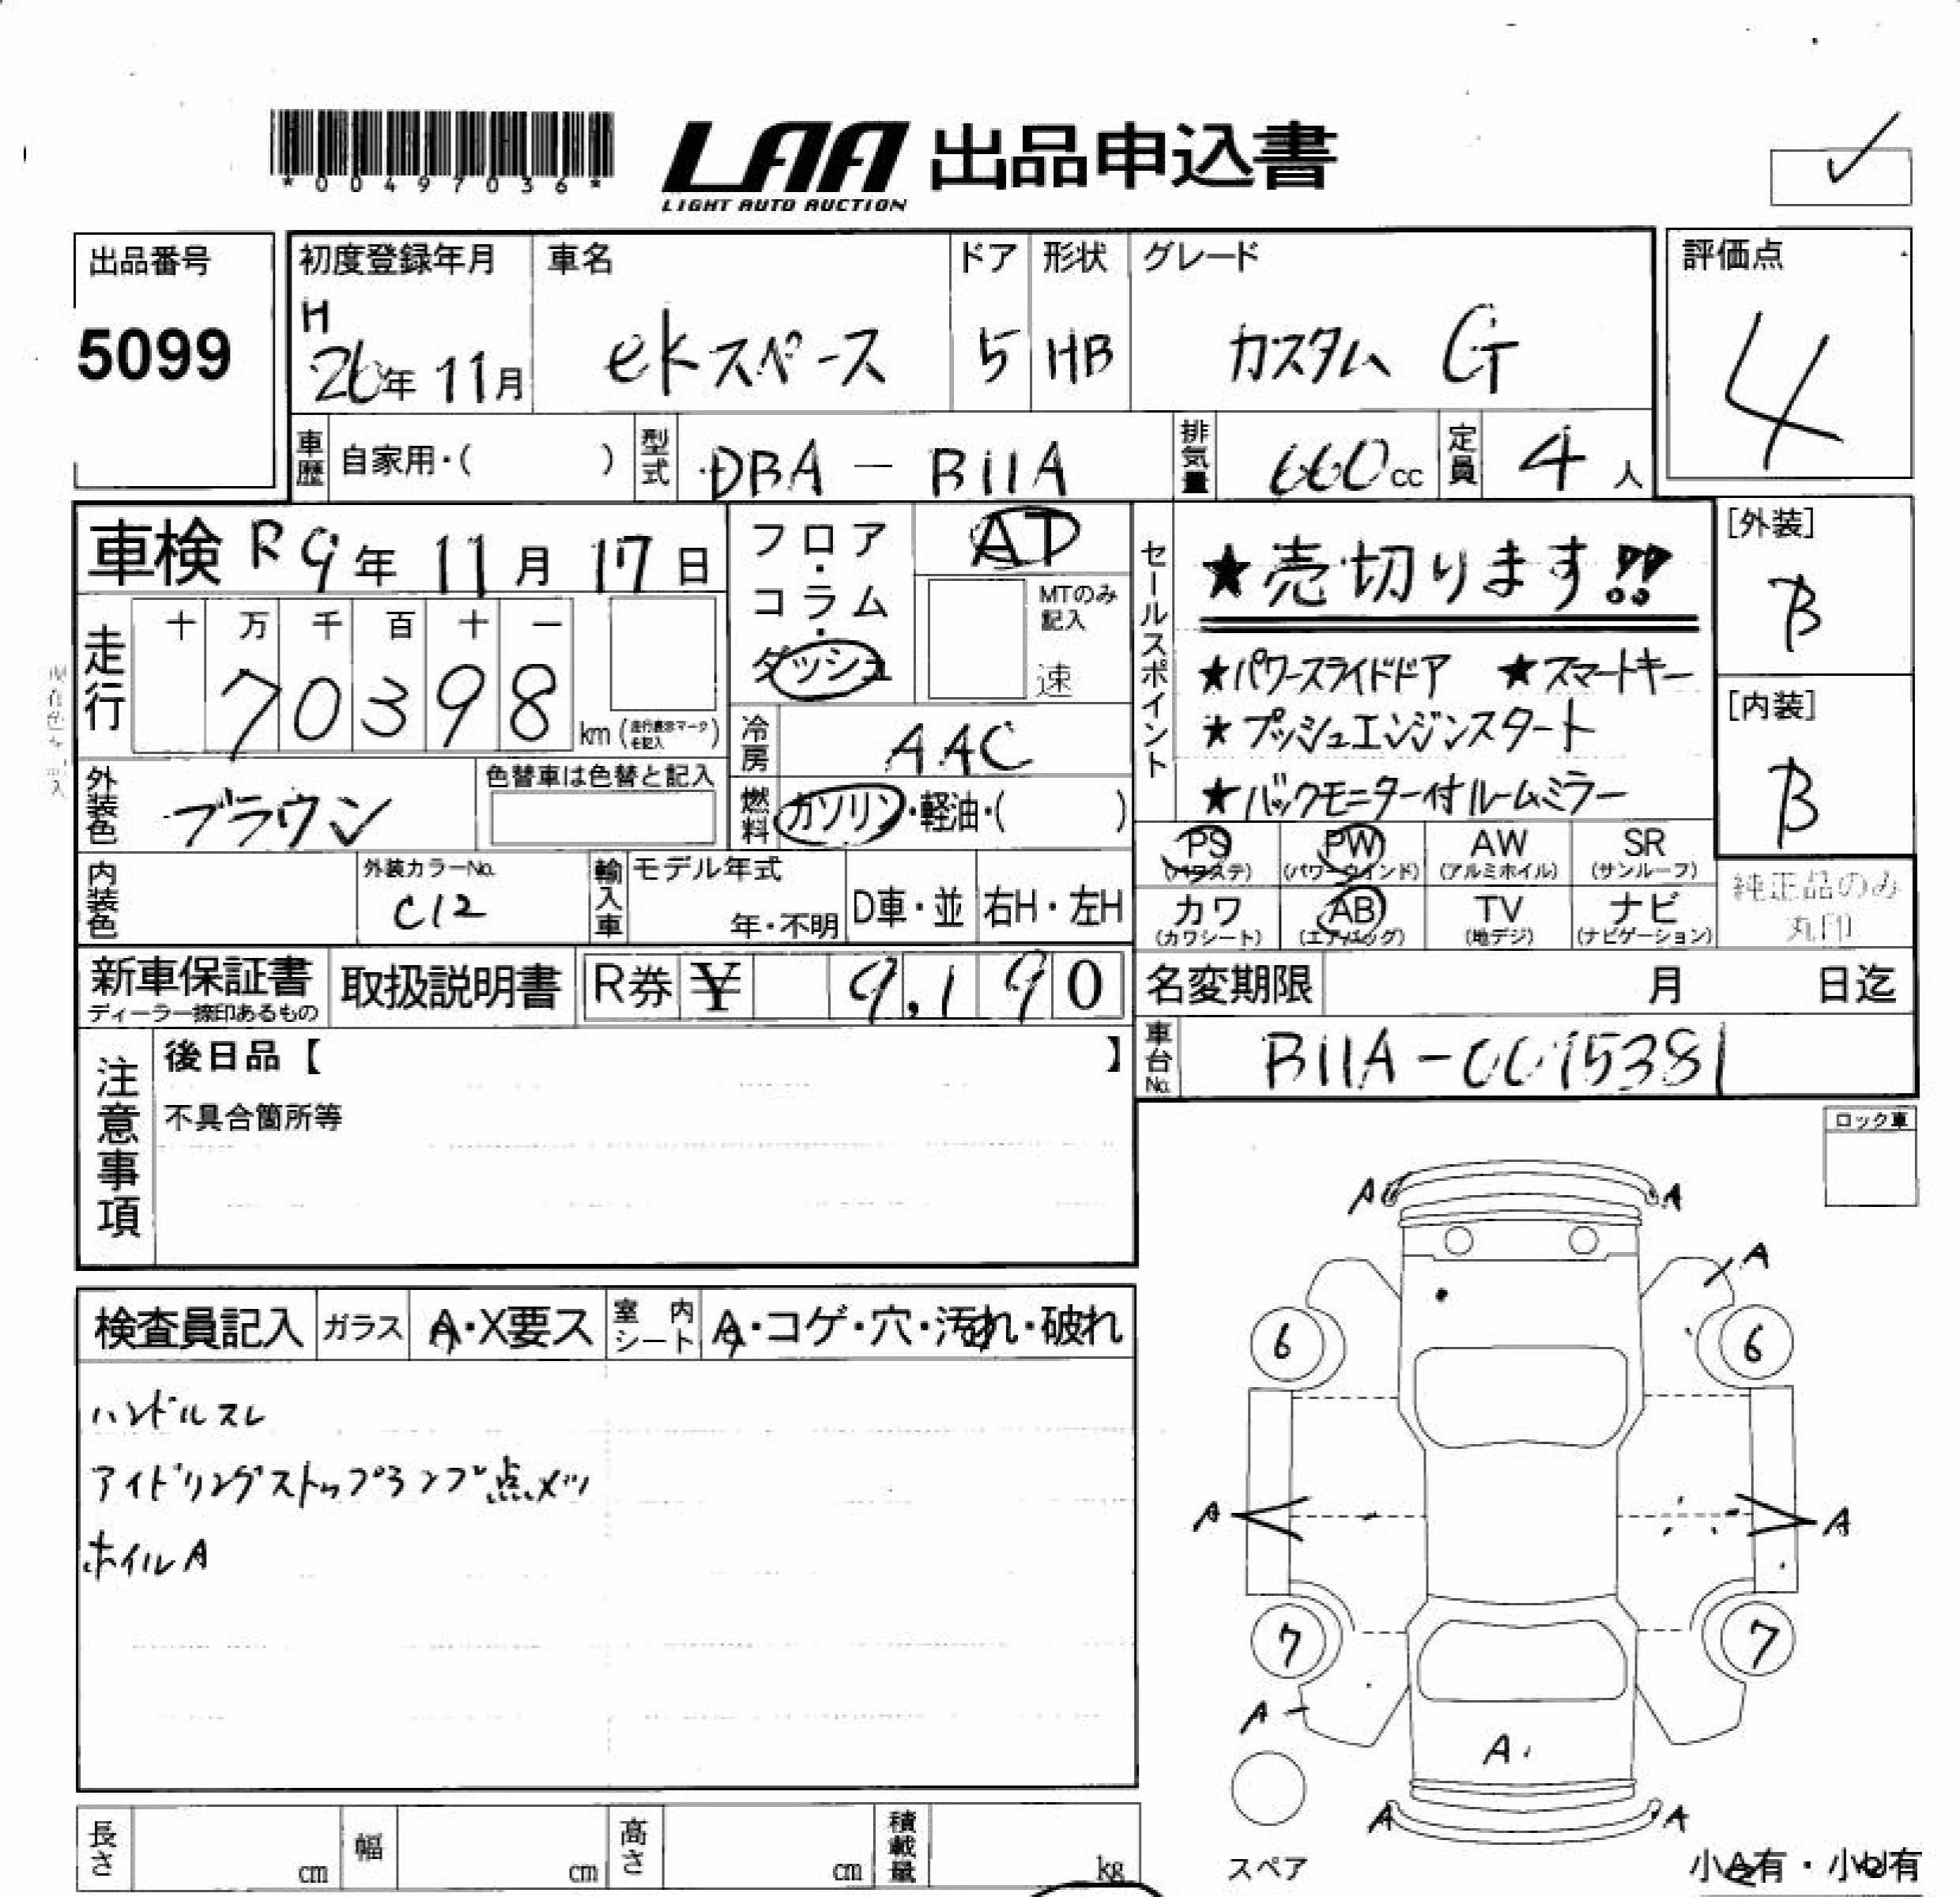 *00497036*
LAA 出品申込書
LIGHT AUTO AUCTION
出品番号
5099
初度登録年月
H
26年 11月
車名
ekスペース
ドア
5
形状
HB
グレード
カスタム G
評価点
4
車歴 自家用・( )
型式 DBA - B11A
排気量 660cc
定員 4人
車検 R9年 11月 17日
走行
十 万 千 百 十 一
70398
km (走行表示マークを記入)
フロア・コラム・ダッシュ
AT
MTのみ記入
速
冷房 AAC
燃料 ガソリン・軽油・( )
外装色 ブラウン
色替車は色替と記入
内装色
外装カラーNo.
C12
輸入車
モデル年式
年・不明
D車・並
右H・左H
セールスポイント
★売切ります!!
★パワースライドドア ★スマートキー
★プッシュエンジンスタート
★バックモニター付ルームミラー
[外装]
B
[内装]
B
PS PW AW SR
(パワステ) (パワーウインド) (アルミホイル) (サンルーフ)
カワ AB TV ナビ
(カワシート) (エアバッグ) (地デジ) (ナビゲーション)
純正品のみ
丸印
新車保証書
ディーラー捺印あるもの
取扱説明書
R券 ¥ 9,190
名変期限 月 日迄
車台No. B11A-0015381
注意事項
後日品【 】
不具合箇所等
ロック車
検査員記入
ガラス A・X要ス
室内シート A・コゲ・穴・汚れ・破れ
ハンドルスレ
アイドリングストップランプ点メツ
ホイルA
A A
A
6 6
A A
7 7
A
A
A A
スペア
小A有・小U有
長さ cm
幅 cm
高さ cm
積載量 kg